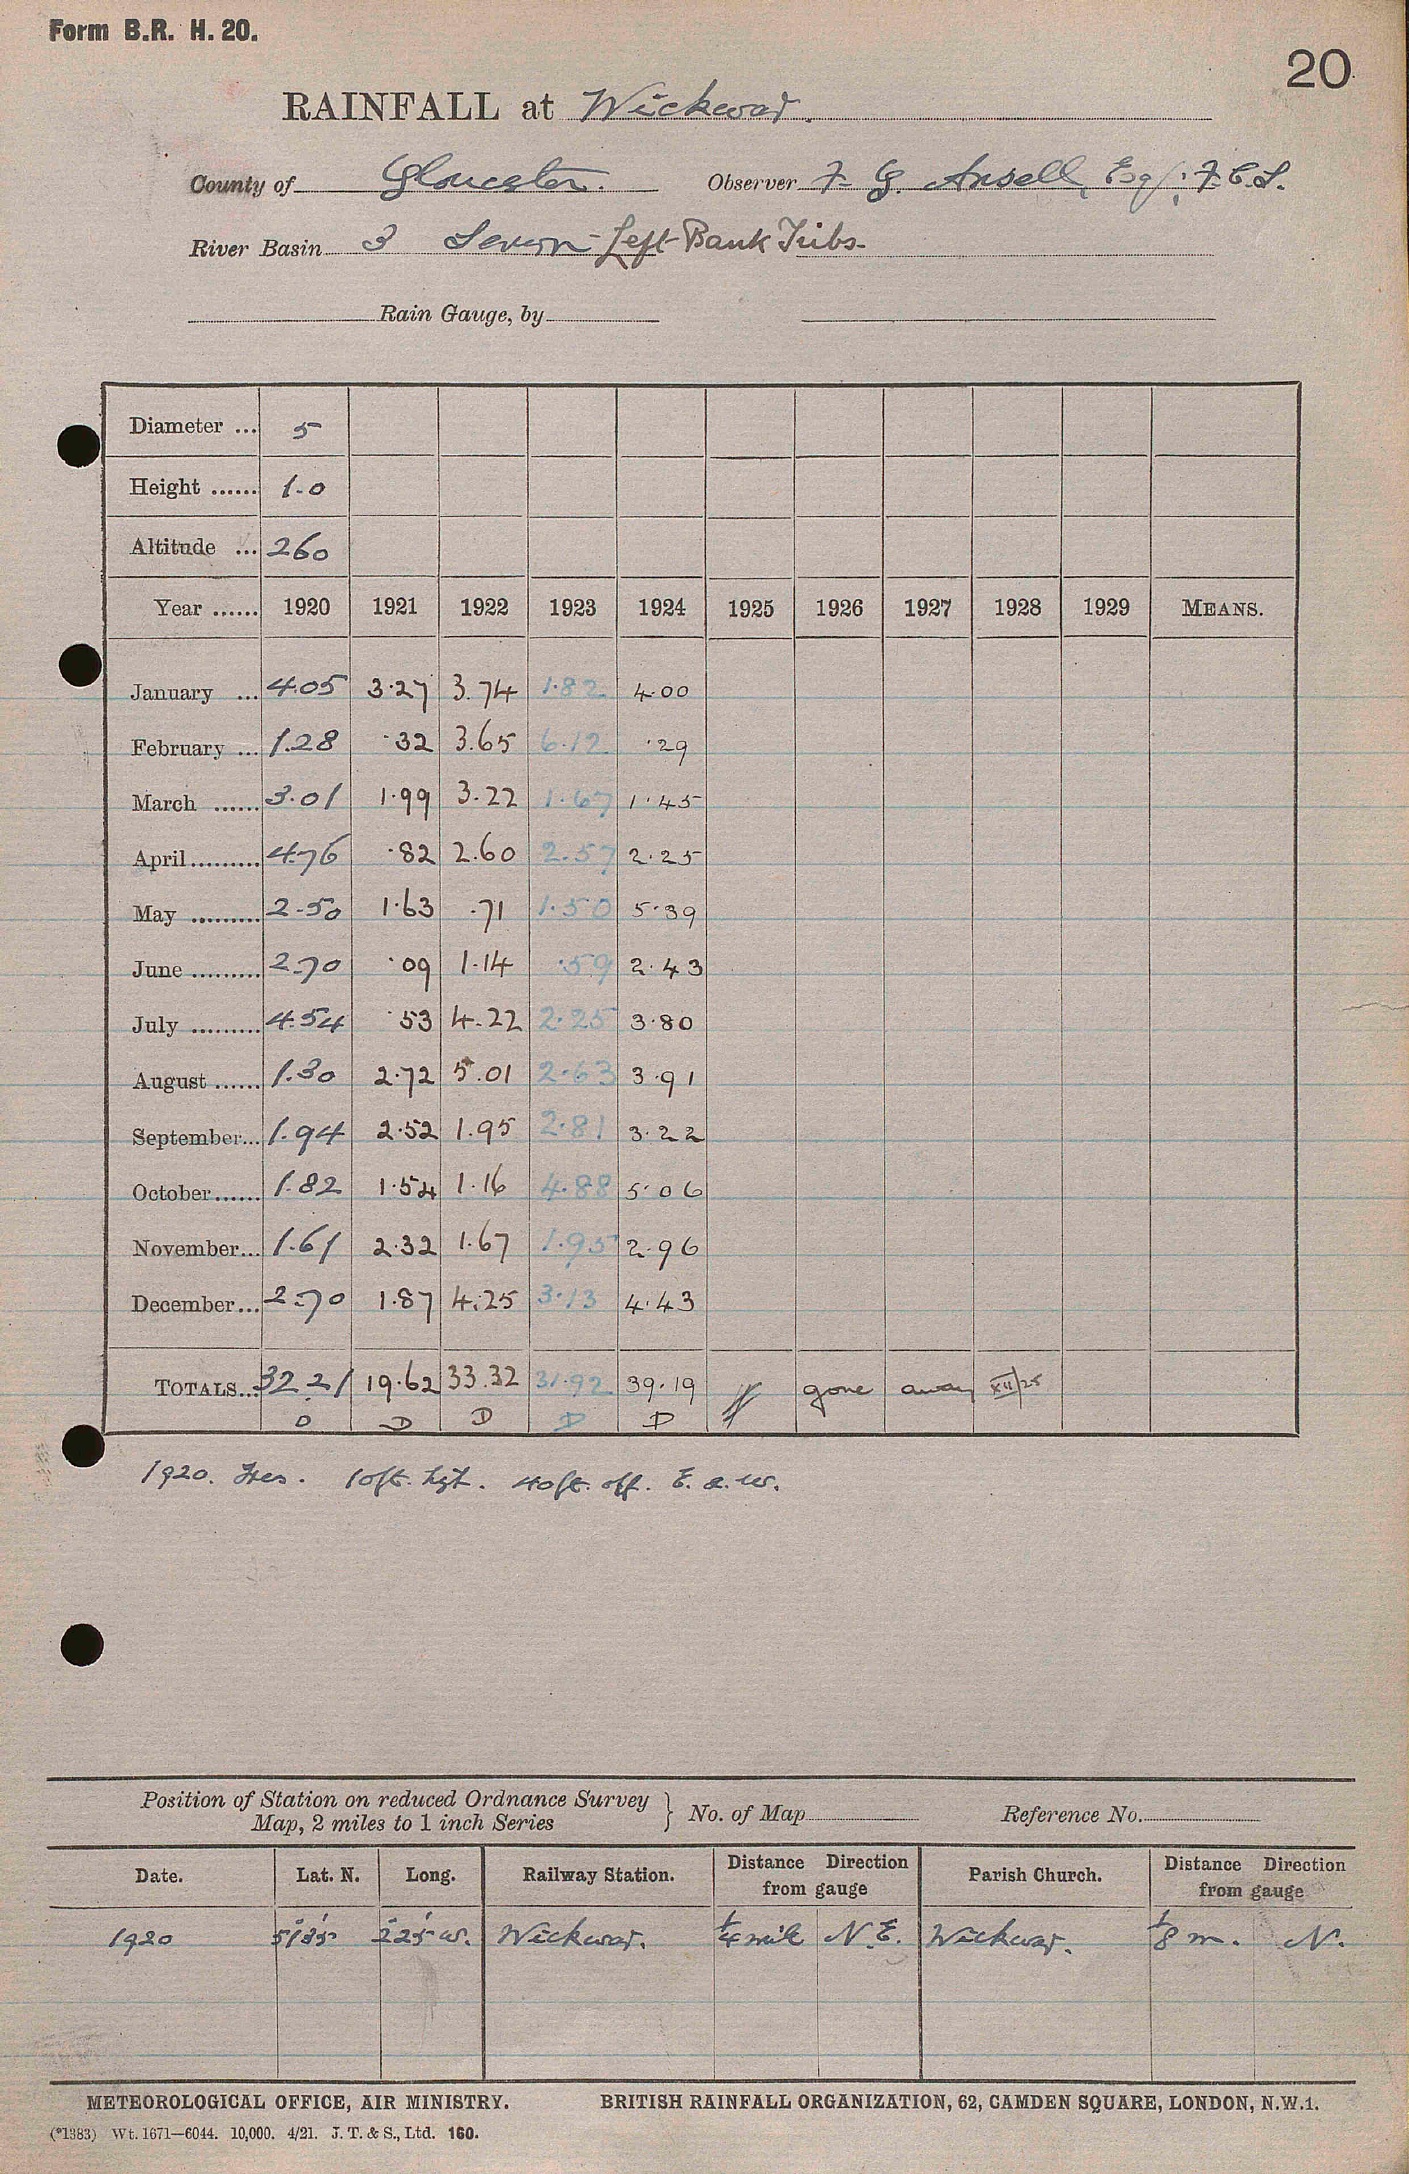 Form B.R. H. 20.
20
RAINFALL at Wickwar.
County of Gloucester. Observer F. G. Ansell, Esq.; F.C.S.
River Basin 3 Severn - Left Bank Tribs.
Rain Gauge, by
Diameter ... 5
Height ...... 1.0
Altitude ... 260
Year ...... 1920 1921 1922 1923 1924 1925 1926 1927 1928 1929 MEANS.
January ... 4.05 3.27 3.74 1.82 4.00
February ... 1.28 .32 3.65 6.12 .29
March ...... 3.01 1.99 3.22 1.67 1.45
April ......... 4.76 .82 2.60 2.57 2.25
May ......... 2.50 1.63 .71 1.50 5.39
June ......... 2.70 .09 1.14 .59 2.43
July ......... 4.54 .53 4.22 2.25 3.80
August ...... 1.30 2.72 5.01 2.63 3.91
September... 1.94 2.52 1.95 2.81 3.22
October...... 1.82 1.54 1.16 4.88 5.06
November... 1.61 2.32 1.67 1.95 2.96
December... 2.70 1.87 4.25 3.13 4.43
TOTALS... 32.21 19.62 33.32 31.92 39.19 gone away XII/25
D D D D D
1920. Trees. 10ft. hgt. 40ft. off. E. & W.
Position of Station on reduced Ordnance Survey
Map, 2 miles to 1 inch Series } No. of Map Reference No.
Date. Lat. N. Long. Railway Station. Distance Direction from gauge Parish Church. Distance Direction from gauge
1920 51°35' 2°25' W. Wickwar. 1/4 mile N.E. Wickwar. 1/8 m. N.
METEOROLOGICAL OFFICE, AIR MINISTRY. BRITISH RAINFALL ORGANIZATION, 62, CAMDEN SQUARE, LONDON, N.W.1.
(*1383) Wt. 1671—6044. 10,000. 4/21. J. T. & S., Ltd. 160.